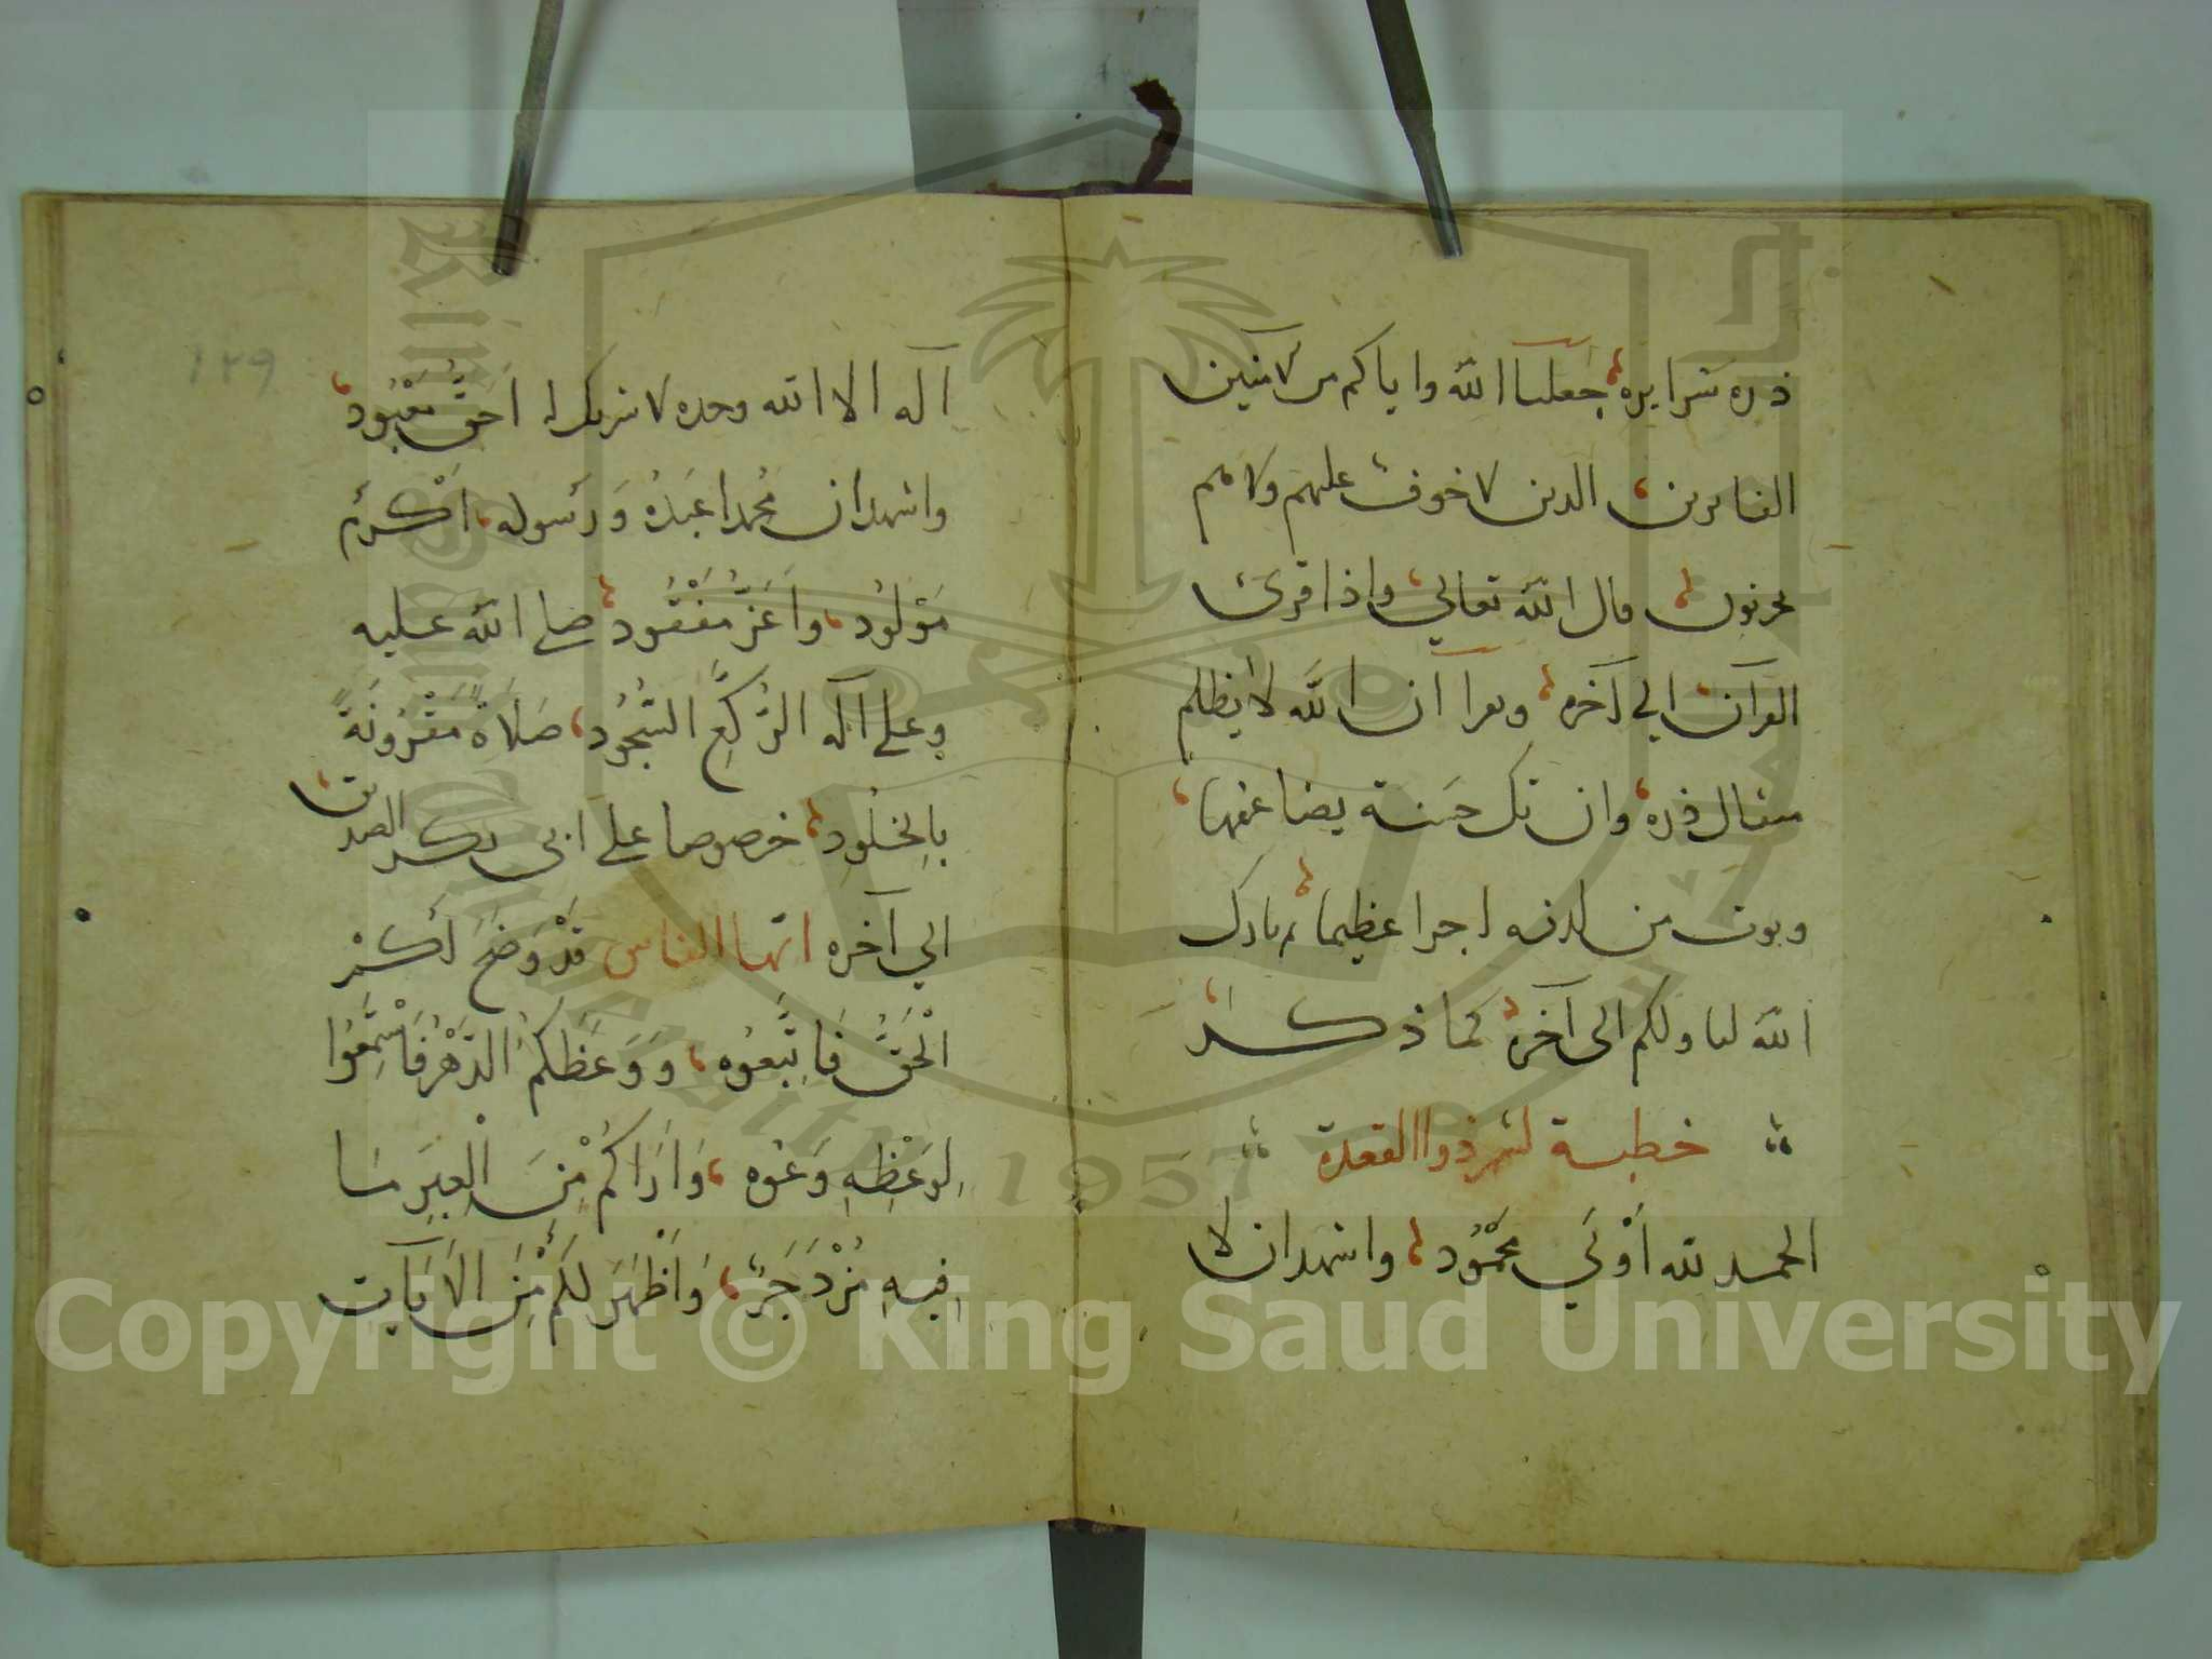 ذره شرا يره، جعلنا الله واياكم من الامنين
الفايزين، الدين لا خوف عليهم ولا هم
يحزنون، قال الله تعالي، واذا قرئ
القرآن الي آخره، ويقرا ان الله لا يظلم
مثقال ذره، وان تك حسنة يضاعفها،
ويوت من لدنه اجرا عظيما، بارك
الله لنا ولكم الى آخره، كما ذكر،
خطبة لشهر ذوا القعدة
الحمد لله أَوْلَي مَحْمُود، واشهد ان لا
اله الا الله وحده لا شريك له احَقُّ مَعْبُود،
واشهد ان مُحمدا عَبدُه وَرَسوله، اكْرَم
مَوْلُود، واَعَزُّ مَفْقُود، صلى الله عليه
وعلى آله الرُّكَّعِ السُّجُود، صَلاةً مَقْرُونَةً
بالخُلُود، خصوصا على ابى بكر الصديق،
الي آخره ايها الناس قَدْ وَضَحَ لَكُمْ
الْحَقُّ فَاتَّبِعُوه، وَوَعَظَكُمُ الدَّهْرُ فَاسْتَمِعُوا
لِوَعْظِهِ وَعُوه، وَاَرَاكُمْ مِنَ الْعِبَرِ مَا
فِيهِ مُزْدَجَرٌ، وَاَظْهَرَ لَكُمْ مِنَ الاَيَاتِ
١٢٩
King Saud University
1957
Copyright © King Saud University